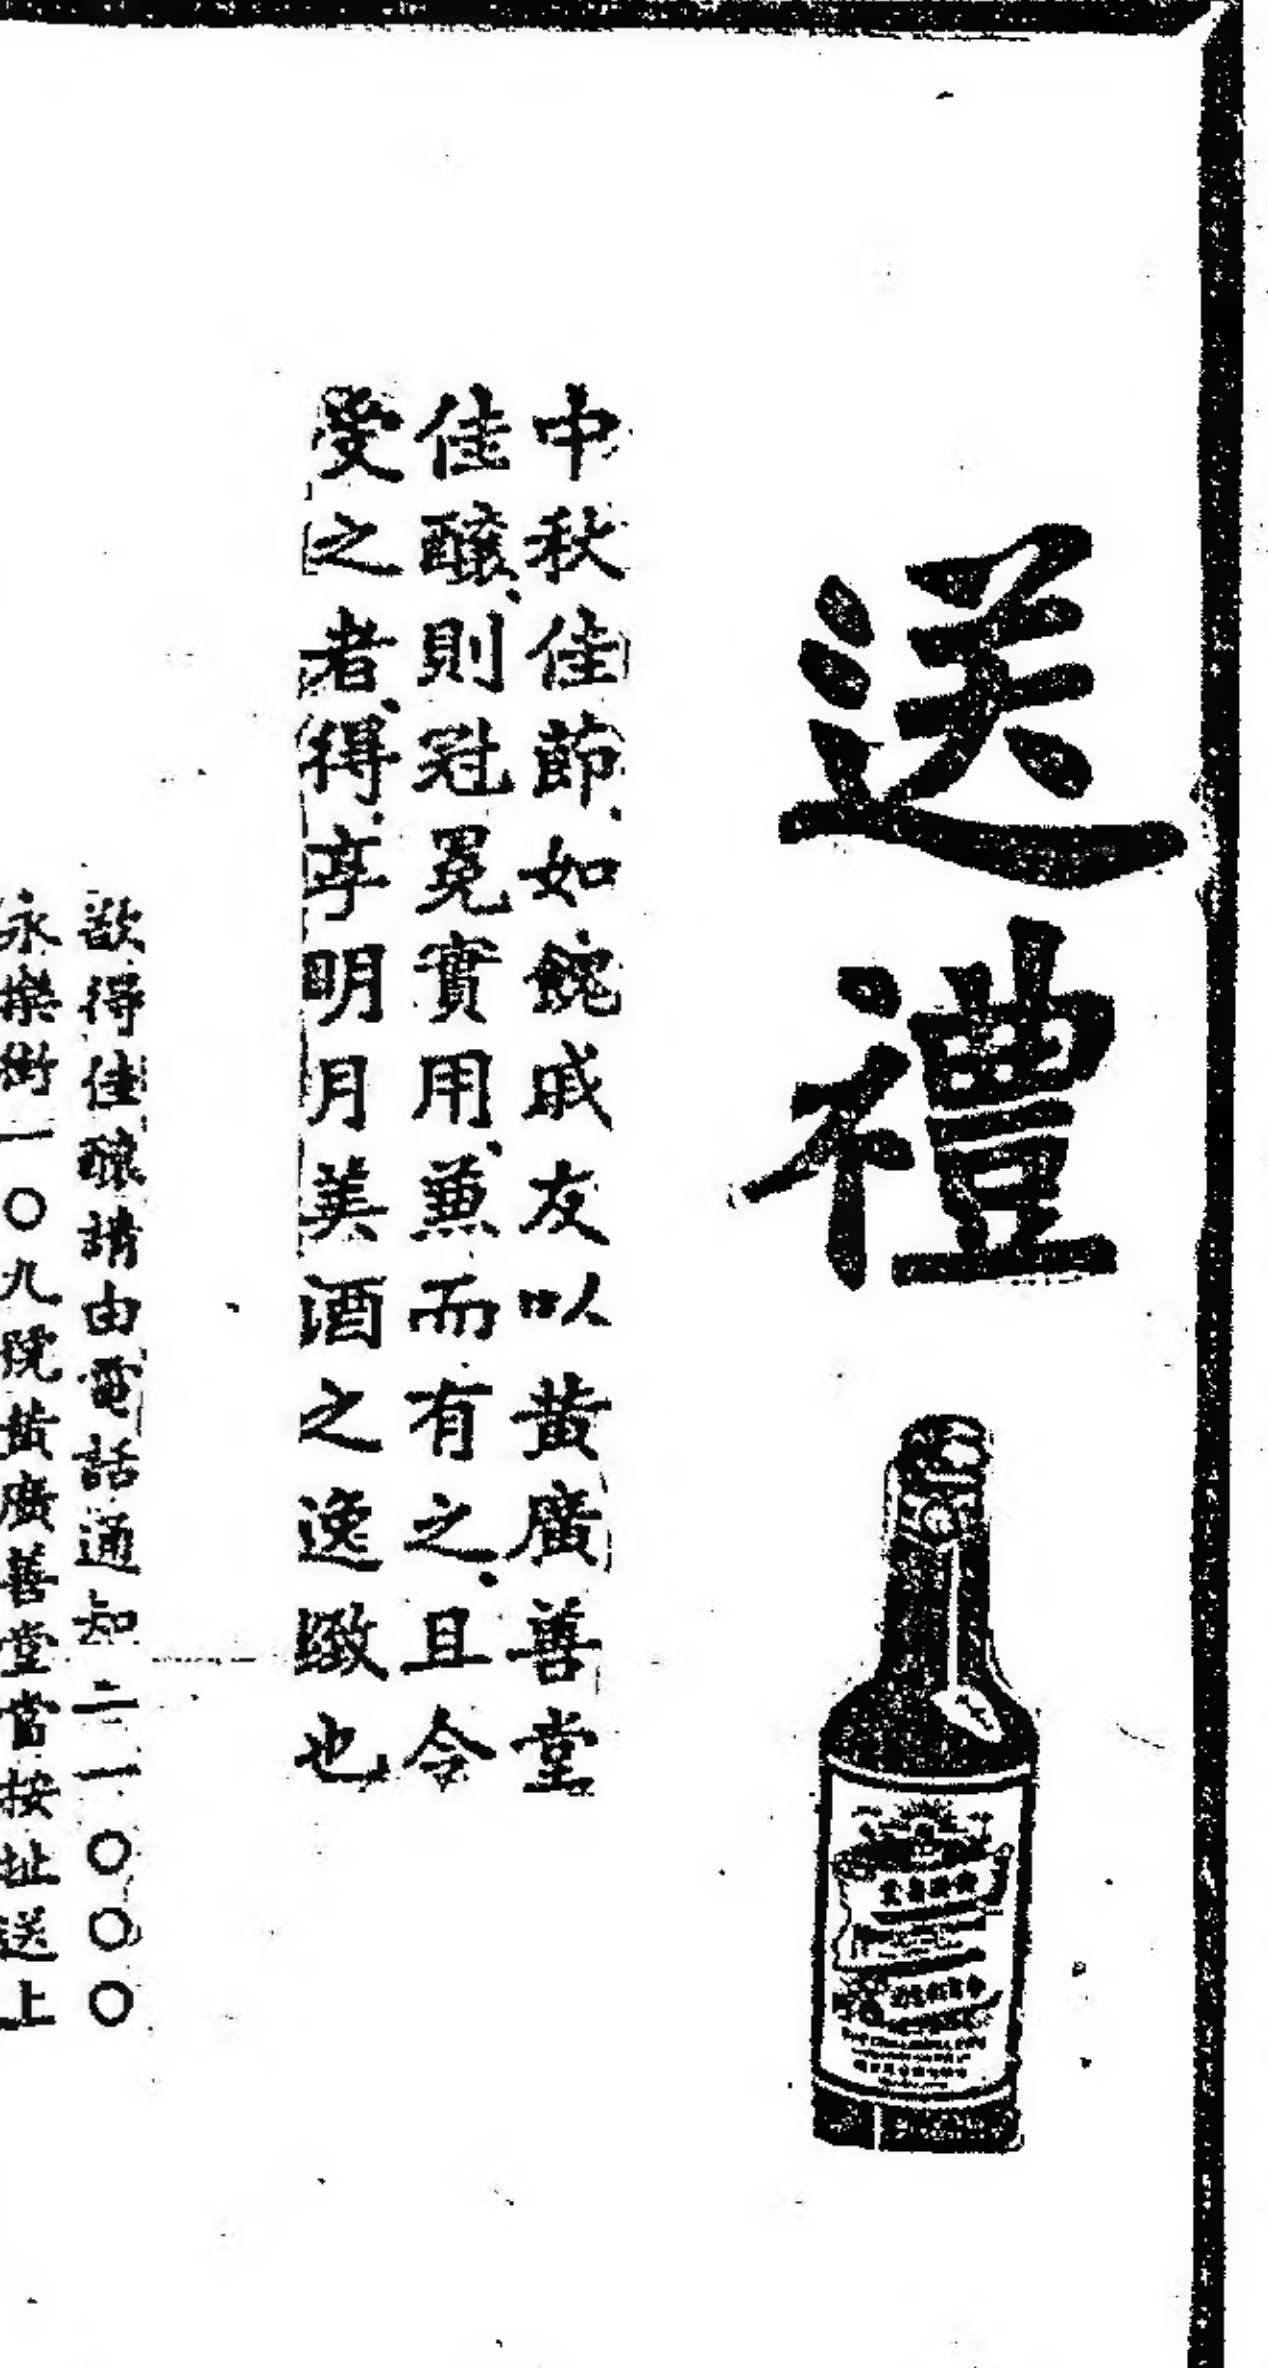 送禮
中秋佳節.如餽戚友以黃廣善堂
佳釀、則冠冕實用、兼而有之、且令
受之者、得享明月美酒之逸緻也
欲得佳釀請由電話通知二一〇〇〇
永樂街一〇九號黃廣善堂當按址送上